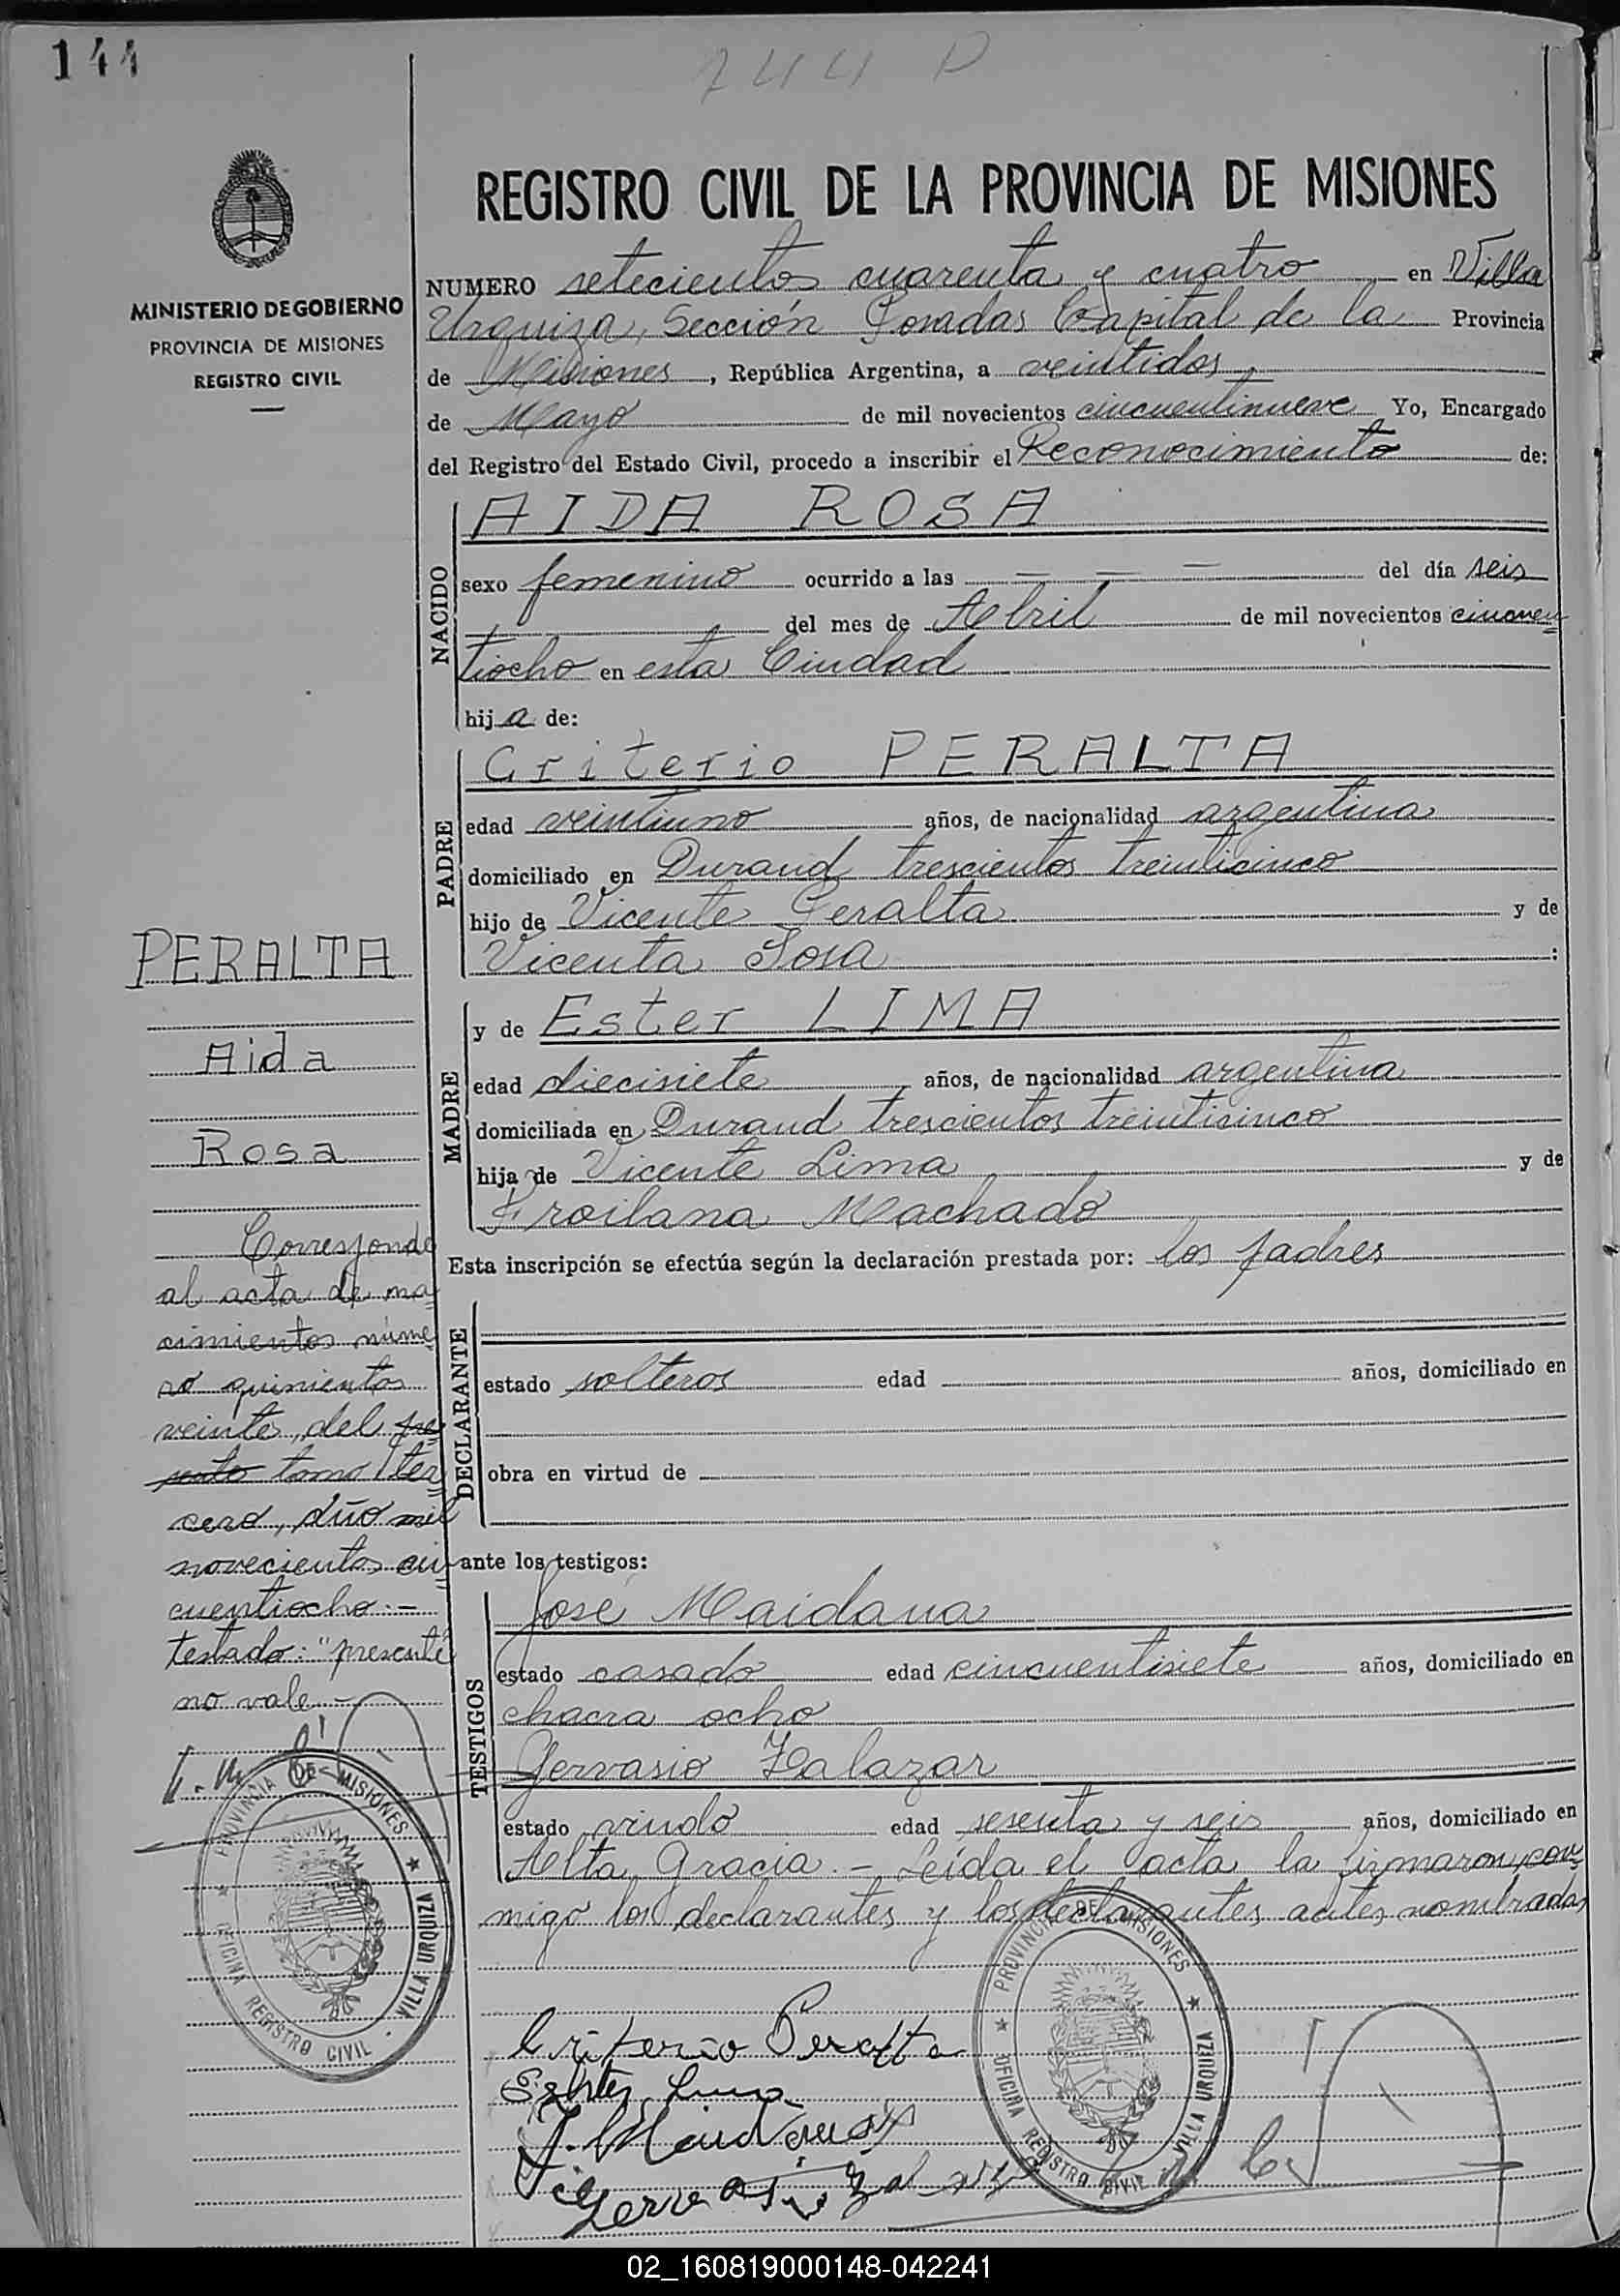 144
744 P
REGISTRO CIVIL DE LA PROVINCIA DE MISIONES
MINISTERIO DE GOBIERNO
PROVINCIA DE MISIONES
REGISTRO CIVIL
NUMERO setecientos cuarenta y cuatro en Villa
Urquiza, Sección Posadas Capital de la Provincia
de Misiones, República Argentina, a veintidos
de Mayo de mil novecientos cincuentinueve Yo, Encargado
del Registro del Estado Civil, procedo a inscribir el Reconocimiento de:
NACIDO
AIDA ROSA
sexo femenino ocurrido a las — — — del día seis
del mes de Abril de mil novecientos cincuen
tiocho en esta Ciudad
hija de:
PADRE
Criterio PERALTA
edad veintiuno años, de nacionalidad argentina
domiciliado en Durand trescientos treinticinco
hijo de Vicente Peralta y de
Vicenta Sosa :
MADRE
y de Ester LIMA
edad diecisiete años, de nacionalidad argentina
domiciliada en Durand trescientos treinticinco
hija de Vicente Lima y de
Froilana Machado
Esta inscripción se efectúa según la declaración prestada por: los padres
DECLARANTE
estado solteros edad años, domiciliado en
obra en virtud de
ante los testigos:
TESTIGOS
José Maidana
estado casado edad cincuentisiete años, domiciliado en
chacra ocho
Gervasio Zalazar
estado viudo edad sesenta y seis años, domiciliado en
Alta Gracia.- Leída el acta la firmaron con
migo los declarantes y los declarantes antes nombrados
Criterio Peralta
Ester Lima
J. Maidana
Gervasio Zalazar
PERALTA
Aida
Rosa
Corresponde
al acta de na
cimientos núme
ro quinientos
veinte, del pre
sente tomo ter
cero, año mil
novecientos cin
cuentiocho.-
testado: "presente"
no vale.-
PROVINCIA DE MISIONES
OFICINA REGISTRO CIVIL
VILLA URQUIZA
PROVINCIA DE MISIONES
OFICINA REGISTRO CIVIL
VILLA URQUIZA
02_160819000148-042241